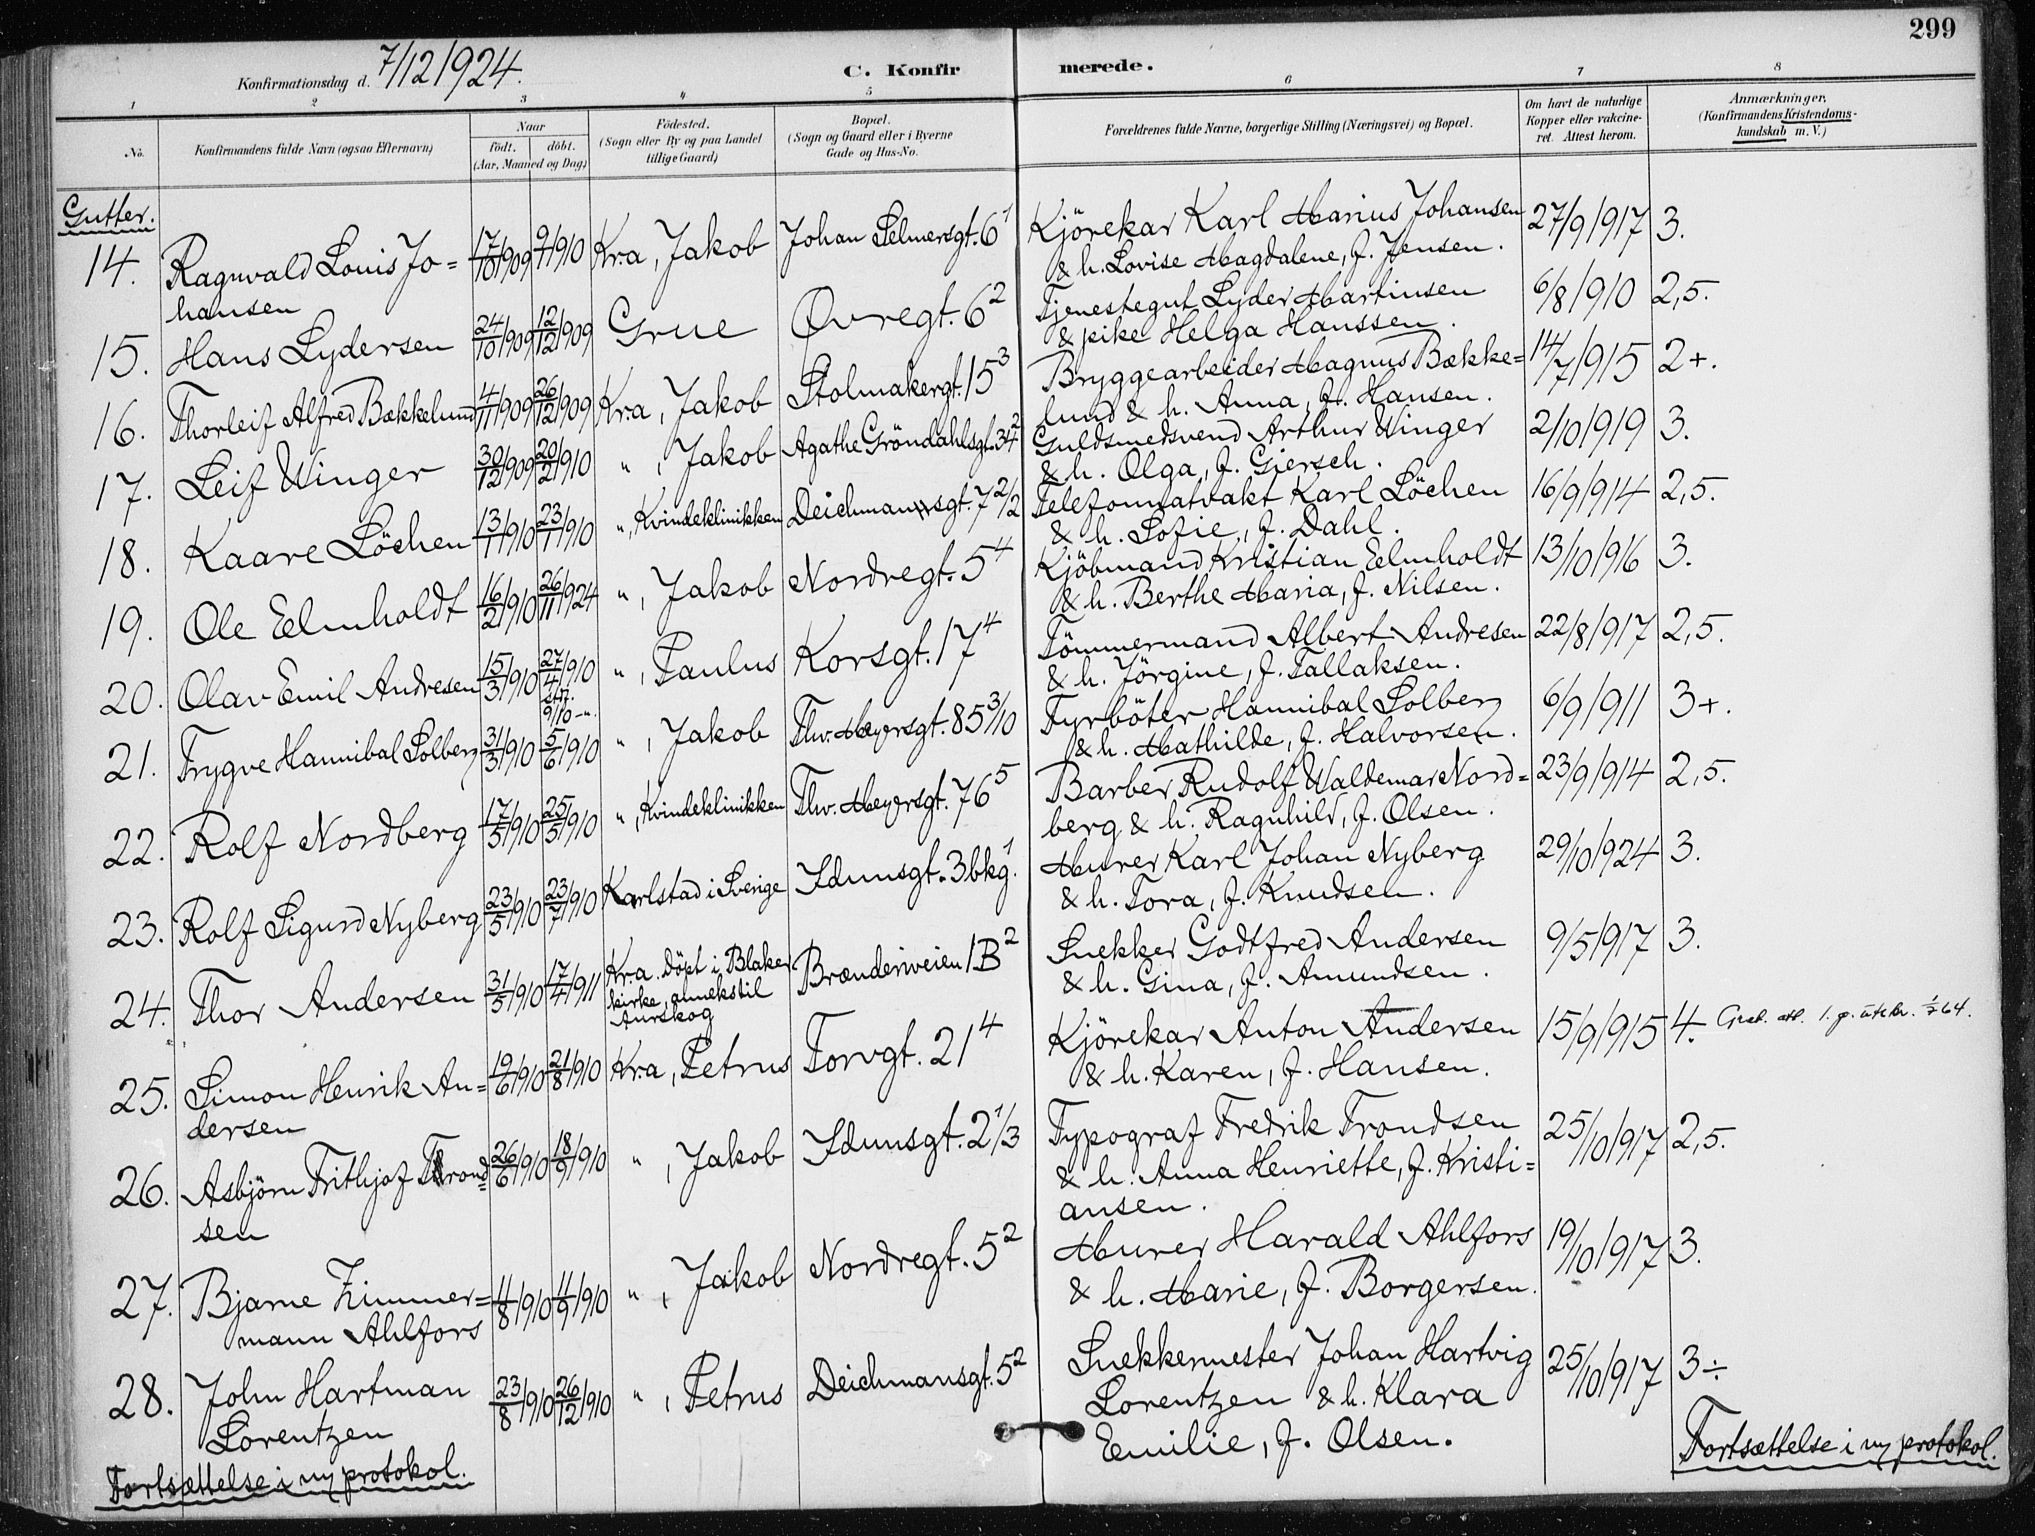 299
Konfirmationsdag d. 7/12 1924.
C. Konfirmerede.
1 2 3 4 5 6 7 8
No. Konfirmandens fulde Navn (ogsaa Efternavn) Naar födt. döbt. (Aar, Maaned og Dag) Födested. (Sogn eller By og paa Landet tillige Gaard) Bopæl. (Sogn og Gaard eller i Byerne Gade og Hus-No. Forældrenes fulde Navne, borgerlige Stilling (Næringsvei) og Bopæl. Om havt de naturlige Kopper eller vakcineret. Attest herom. Anmærkninger. (Konfirmandens Kristendomskundskab m. V.)
Gutter.
14. Ragnvald Louis Jo= 17/10 1909 9/1 1910 Kra, Jakob Johan Selmersgt. 6¹ Kjörekar Karl Marius Johansen 27/9 1917 3.
hansen & h. Lovise Magdalene, f. Jensen.
15. Hans Lydersen 24/10 1909 12/12 1909 Grue Øvregt. 6² Tjenestegut Lyder Martinsen 6/8 1910 2,5.
& pike Helga Hanssen.
16. Thorleif Alfred Bækkelund 4/11 1909 26/12 1909 Kra, Jakob Stolmakergt. 15³ Bryggearbeider Magnus Bække= 14/7 1915 2+.
lund & h. Anna, f. Hansen.
17. Leif Winger 30/12 1909 20/2 1910 ", Jakob Agathe Gröndahlsgt. 34² Guldsmedsvend Arthur Winger 2/10 1919 3.
& h. Olga, f. Giersch.
18. Kaare Löchen 13/1 1910 23/1 1910 ", Kvindeklinikken Deichmansgt. 7 2/2 Telefonnatvakt Karl Löchen 16/9 1914 2,5.
& h. Sofie, f. Dahl.
19. Ole Eelmholdt 16/2 1910 26/11 1924 ", Jakob Nordregt. 5⁴ Kjöbmand Kristian Eelmholdt 13/10 1916 3.
& h. Berthe Maria, f. Nilsen.
20. Olav Emil Andresen 15/3 1910 27/4 1910 ", Paulus Korsgt. 17⁴ Tömmermand Albert Andresen 22/8 1917 2,5.
9/10 -". & h. Jörgine, f. Tallaksen.
21. Trygve Hannibal Solberg 31/3 1910 5/6 1910 ", Jakob Thv. Meyersgt. 85 3/10 Fyrböter Hannibal Solberg 6/9 1911 3+.
& h. Mathilde, f. Halvorsen.
22. Rolf Nordberg 17/5 1910 25/5 1910 ", Kvindeklinikken Thv. Meyersgt. 76⁵ Barber Rudolf Waldemar Nord= 23/9 1914 2,5.
berg & h. Ragnhild, f. Olsen.
23. Rolf Sigurd Nyberg 23/5 1910 23/7 1910 Karlstad i Sverige Idunsgt. 3 bkg.¹ Murer Karl Johan Nyberg 29/10 1924 3.
& h. Tora, f. Knudsen.
24. Thor Andersen 31/5 1910 17/4 1911 Kra. döpt i Blaker Brænderiveien 1B² Snekker Godtfred Andersen 9/5 1917 3.
kirke, anneks til & h. Gina, f. Amundsen.
Aurskog
25. Simon Henrik An= 19/6 1910 21/8 1910 Kra, Petrus Torvgt. 21⁴ Kjörekar Anton Andersen 15/9 1915 4. 1/7 64.
dersen & h. Karen, f. Hansen.
26. Asbjörn Frithjof Trond= 26/6 1910 18/9 1910 ", Jakob Idunsgt. 2 1/3 Typograf Fredrik Trondsen 25/10 1917 2,5.
sen & h. Anna Henriette, f. Kristi=
ansen.
27. Bjarne Zimmer= 11/8 1910 11/9 1910 ", Jakob Nordregt. 5² Murer Harald Ahlfors 19/10 1917 3.
mann Ahlfors & h. Marie, f. Borgersen.
28. John Hartman 23/8 1910 26/12 1910 ", Petrus Deichmansgt. 5² Snekkermester Johan Hartvig 25/10 1917 3÷
Lorentzen Lorentzen & h. Klara
Emilie, f. Olsen.
Fortsættelse i ny protokol. Fortsættelse i ny protokol.